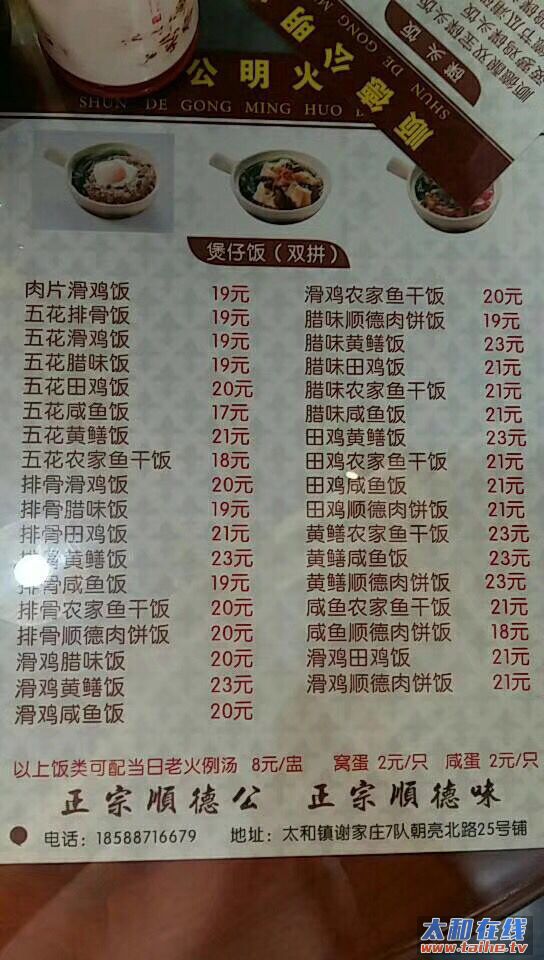 顺德酿双宝碟头饭
碟头饭
顺德公明
SHUN DE GONG M
公明火
SHUN DE GONG MING HUO
煲仔饭（双拼）
肉片滑鸡饭 19元
五花排骨饭 19元
五花滑鸡饭 19元
五花腊味饭 19元
五花田鸡饭 20元
五花咸鱼饭 17元
五花黄鳝饭 21元
五花农家鱼干饭 18元
排骨滑鸡饭 20元
排骨腊味饭 19元
排骨田鸡饭 21元
排骨黄鳝饭 23元
排骨咸鱼饭 19元
排骨农家鱼干饭 20元
排骨顺德肉饼饭 20元
滑鸡腊味饭 20元
滑鸡黄鳝饭 23元
滑鸡咸鱼饭 20元
滑鸡农家鱼干饭 20元
腊味顺德肉饼饭 19元
腊味黄鳝饭 23元
腊味田鸡饭 21元
腊味农家鱼干饭 21元
腊味咸鱼饭 21元
田鸡黄鳝饭 23元
田鸡农家鱼干饭 21元
田鸡咸鱼饭 21元
田鸡顺德肉饼饭 21元
黄鳝农家鱼干饭 23元
黄鳝咸鱼饭 23元
黄鳝顺德肉饼饭 23元
咸鱼农家鱼干饭 21元
咸鱼顺德肉饼饭 18元
滑鸡田鸡饭 21元
滑鸡顺德肉饼饭 21元
以上饭类可配当日老火例汤 8元/盅 窝蛋 2元/只 咸蛋 2元/只
正宗順德公 正宗順德味
电话：18588716679 地址：太和镇谢家庄7队朝亮北路25号铺
太和在线
www.taihe.tv